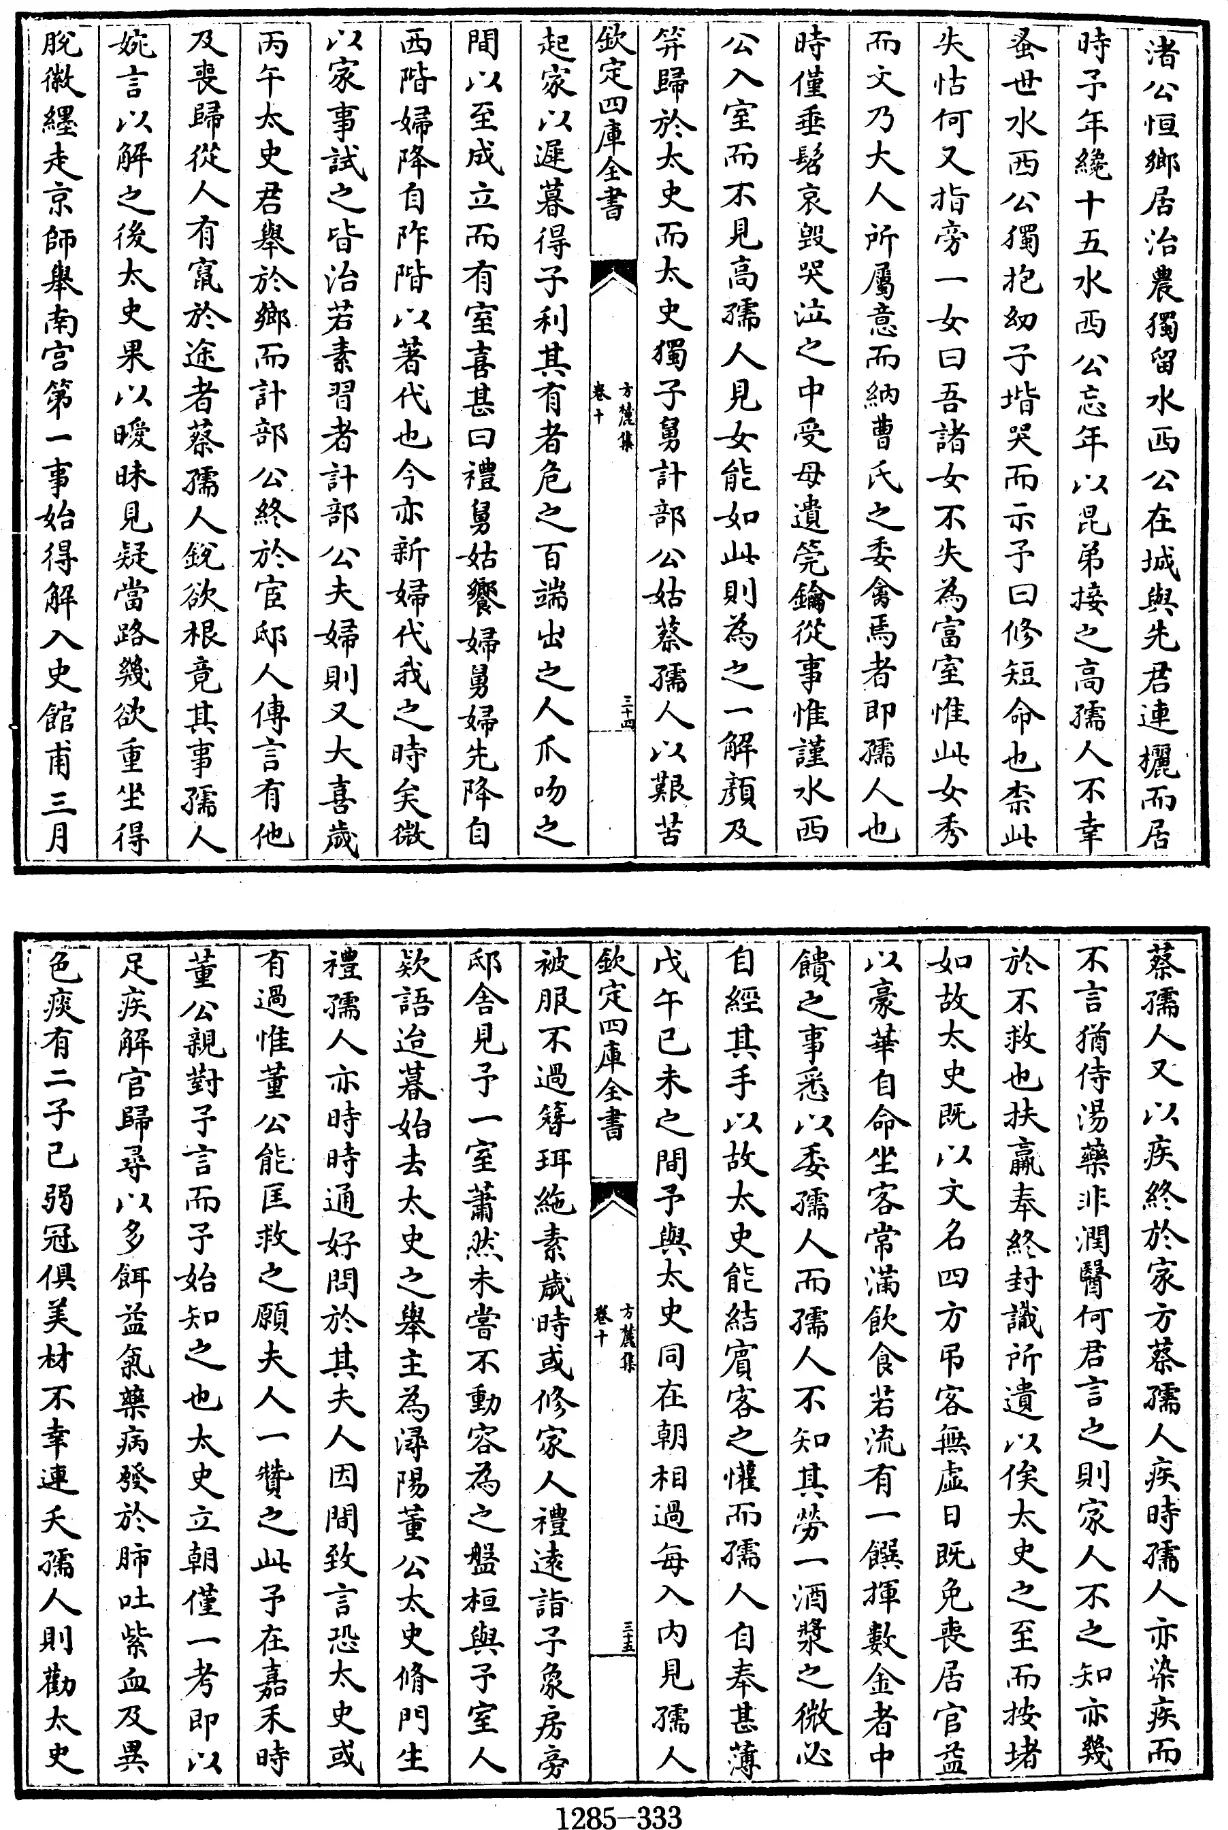 渚公恒鄉居治農獨留水西公在城與先君連欐而居
時予年纔十五水西公忘年以昆弟接之高孺人不幸
蚤世水西公獨抱幼子堦哭而示予曰修短命也柰此
失怙何又指旁一女曰吾諸女不失為富室惟此女秀
而文乃大人所屬意而納曹氏之委禽焉者即孺人也
時僅垂髫哀毀哭泣之中受母遺筦鑰從事惟謹水西
公入室而不見高孺人見女能如此則為之一解顏及
笄歸於太史而太史獨子舅計部公姑蔡孺人以艱苦
欽定四庫全書
方麓集
卷十
三十四
起家以遲暮得子利其有者危之百端出之人爪吻之
間以至成立而有室喜甚曰禮舅姑饗婦舅婦先降自
西階婦降自阼階以著代也今亦新婦代我之時矣微
以家事試之皆治若素習者計部公夫婦則又大喜歲
丙午太史君舉於鄉而計部公終於宦邸人傳言有他
及喪歸從人有竄於途者蔡孺人銳欲根竟其事孺人
婉言以解之後太史果以曖昧見疑當路幾欲重坐得
脫徽纆走京師舉南宮第一事始得解入史館甫三月
蔡孺人又以疾終於家方蔡孺人疾時孺人亦染疾而
不言猶侍湯藥非潤醫何君言之則家人不之知亦幾
於不救也扶羸奉終封識所遺以俟太史之至而按堵
如故太史既以文名四方吊客無虛日既免喪居官益
以豪華自命坐客常滿飲食若流有一饌揮數金者中
饋之事悉以委孺人而孺人不知其勞一酒漿之微必
自經其手以故太史能結賓客之懽而孺人自奉甚薄
戊午己未之間予與太史同在朝相過每入內見孺人
欽定四庫全書
方麓集
卷十
三十五
被服不過簪珥絁素歲時或修家人禮遠詣予象房旁
邸舍見予一室蕭然未嘗不動容為之盤桓與予室人
欵語迨暮始去太史之舉主為潯陽董公太史脩門生
禮孺人亦時時通好問於其夫人因間致言恐太史或
有過惟董公能匡救之願夫人一贊之此予在嘉禾時
董公親對予言而予始知之也太史立朝僅一考即以
足疾解官歸尋以多餌益氣藥病發於肺吐紫血及異
色痰有二子已弱冠俱美材不幸連夭孺人則勸太史
1285-333